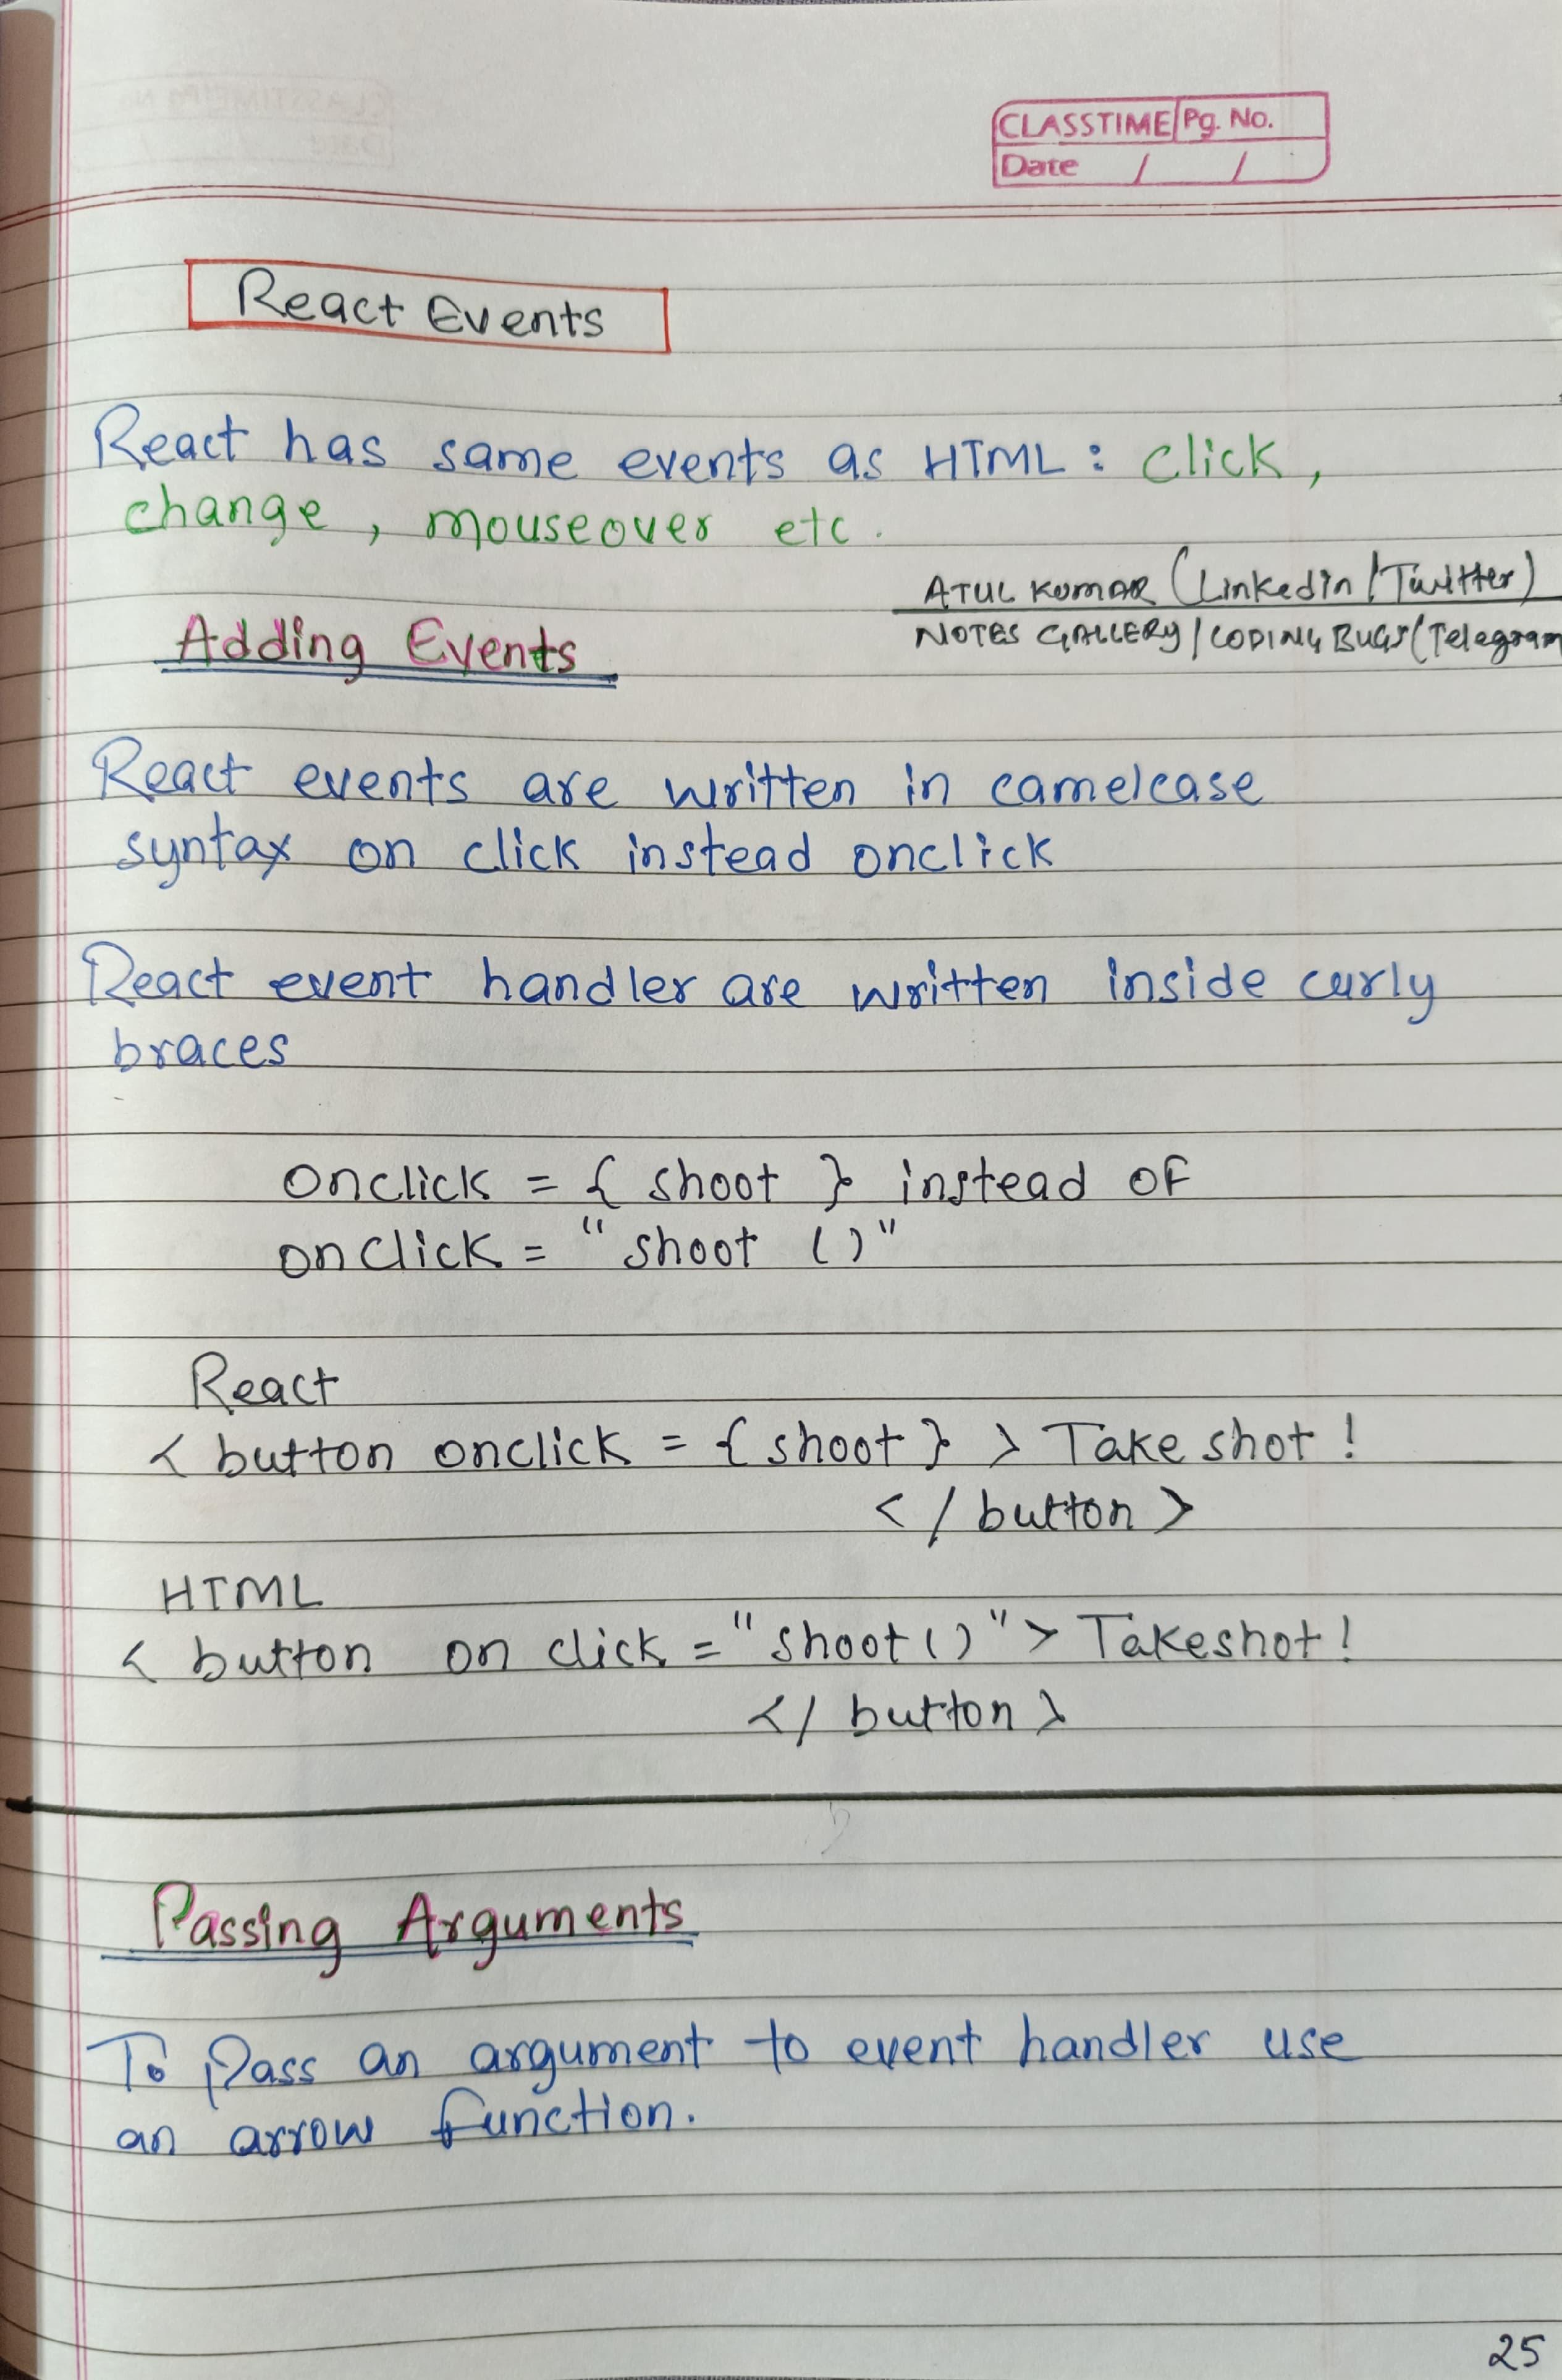 CLASSTIME Pg. No.
Date / /
React Events
React has same events as HTML : click,
change, mouseover etc.
ATUL KUMAR (LinkedIn / Twitter)
NOTES GALLERY / CODING BUGS (Telegram
Adding Events
React events are written in camelcase
syntax on click instead onclick
React event handler are written inside curly
braces
onclick = { shoot } instead of
onclick = "shoot ()"
React
< button onclick = { shoot } > Take shot !
</ button >
HTML
< button on click = "shoot ()" > Takeshot !
</ button >
Passing Arguments
To Pass an argument to event handler use
an arrow function.
25